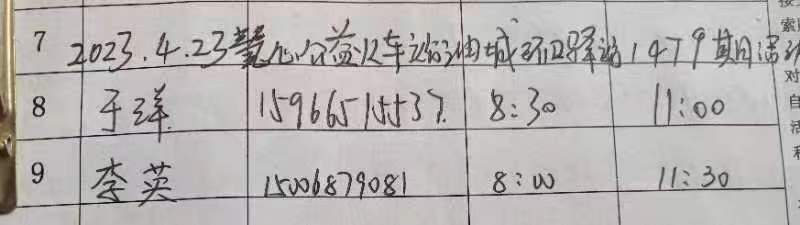 7 2023.4.23 慧心公益火车站油城环卫驿站1479期日活动
8 于洋 15966515537 8:30 11:00
9 李英 15006879081 8:00 11:30